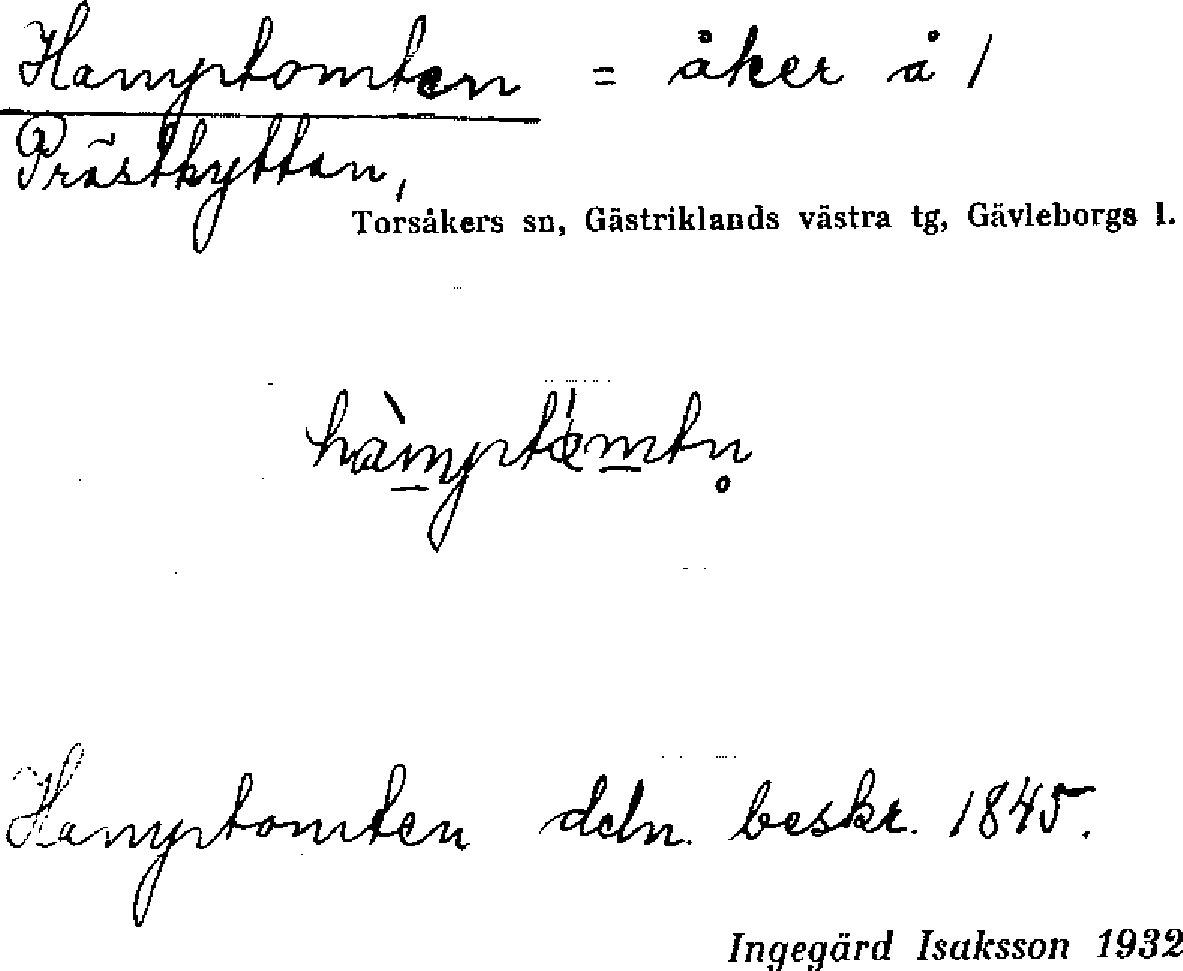 Hamptomten = åker å 1
Prästhyttan,
Torsåkers sn, Gästriklands västra tg, Gävleborgs l.
Hamptomten deln. beskr. 1845.
Ingegärd Isaksson 1932